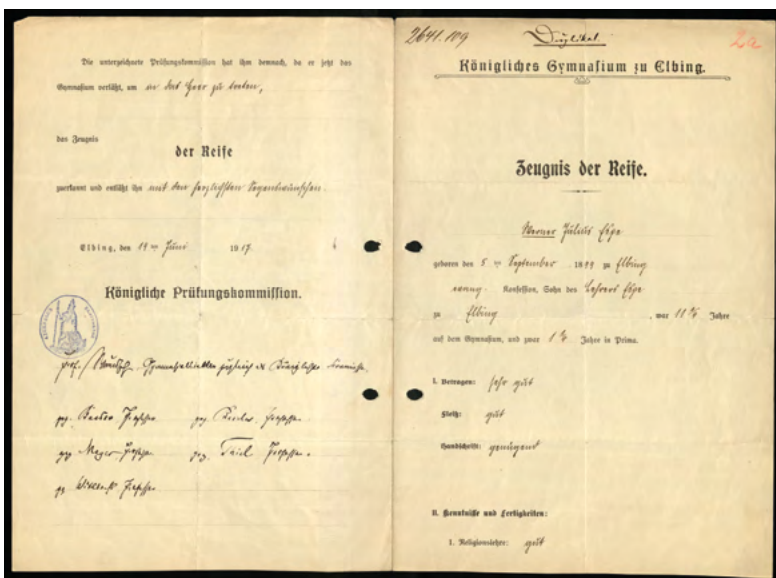 Die unterzeichnete Prüfungskommission hat ihm demnach, da er jetzt das
Gymnasium verläßt, um in das Heer zu treten,
das Zeugnis
der Reife
zuerkannt und entläßt ihn mit den herzlichsten Segenswünschen.
Elbing, den 19ten Juni 1917.
Königliche Prüfungskommission.
Gymnasialdirektor zugleich als Königlicher
gez. Professor gez. Professor
gez. Meyer Professor gez. Professor
gez. Professor
2641.109 Duplikat. 2a
Königliches Gymnasium zu Elbing.
Zeugnis der Reife.
Werner Julius
geboren den 5ten September 1899 zu Elbing
evang. Konfession, Sohn des Lehrers
zu Elbing, war 11 Jahre
auf dem Gymnasium, und zwar 1 Jahre in Prima.
I. Betragen: sehr gut
Fleiß: gut
Handschrift: genügend
II. Kenntnisse und Fertigkeiten:
1. Religionslehre: gut